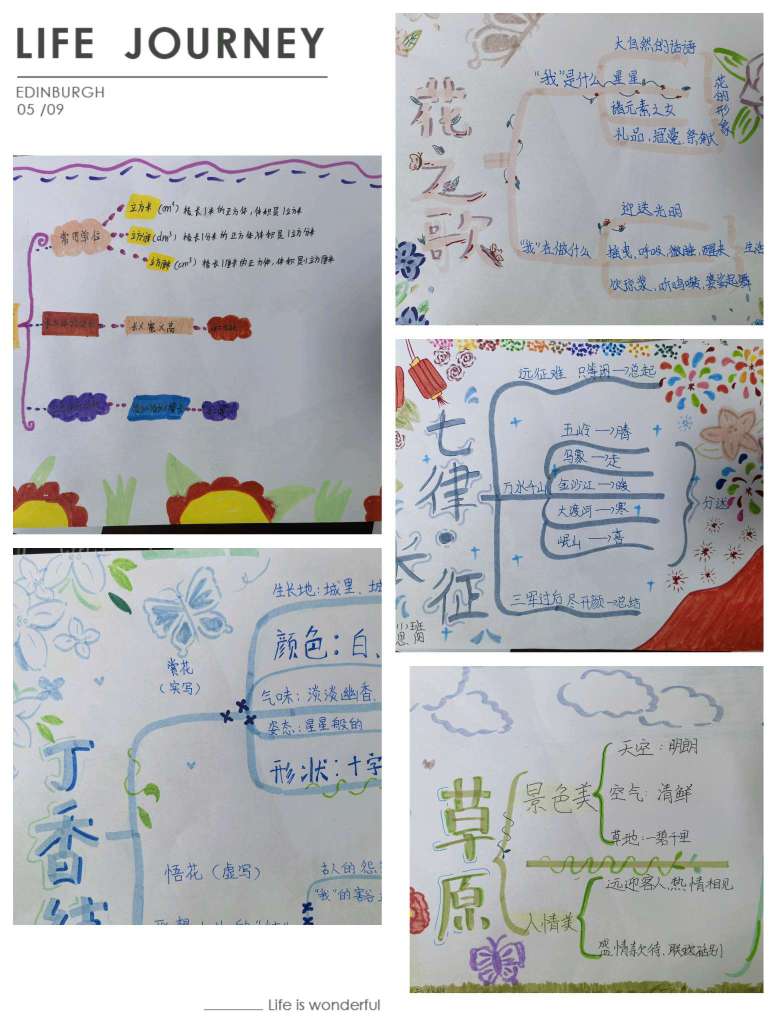 LIFE JOURNEY
EDINBURGH
05 /09
常用单位
立方米 (m³) 棱长1米的正方体,体积是1立方米
立方分米 (dm³) 棱长1分米的正方体,体积是1立方分米
立方厘米 (cm³) 棱长1厘米的正方体,体积是1立方厘米
长×宽×高
花之歌
“我”是什么
大自然的话语
星星
诸元素之女
礼品、冠冕、祭献
花的形象
“我”在做什么
迎送光明
摇曳、呼吸、微睡、醒来
饮琼浆、听鸣啭、婆娑起舞
七律·长征
远征难 只等闲→总起
万水千山
五岭→腾
乌蒙→走
金沙江→暖
大渡河→寒
岷山→喜
分述
三军过后尽开颜→总结
丁香结
赏花
(实写)
生长地:城里、城
颜色:白、
气味:淡淡幽香、
姿态:星星般的
形状:十字
悟花(虚写)
古人的怨
草原
景色美
天空:明朗
空气:清鲜
草地:一碧千里
人情美
远迎客人、热情相见
盛情款待、联欢话别
Life is wonderful